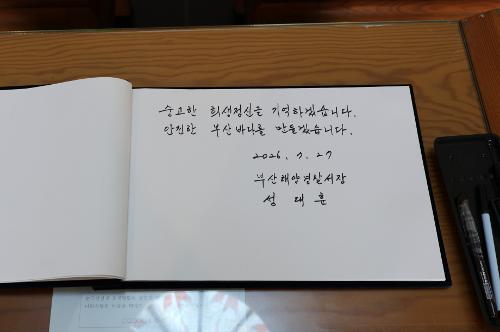 숭고한 희생정신을 기억하겠습니다.
안전한 부산바다를 만들겠습니다.
2026. 7. 27
부산해양경찰서장
성 대 훈